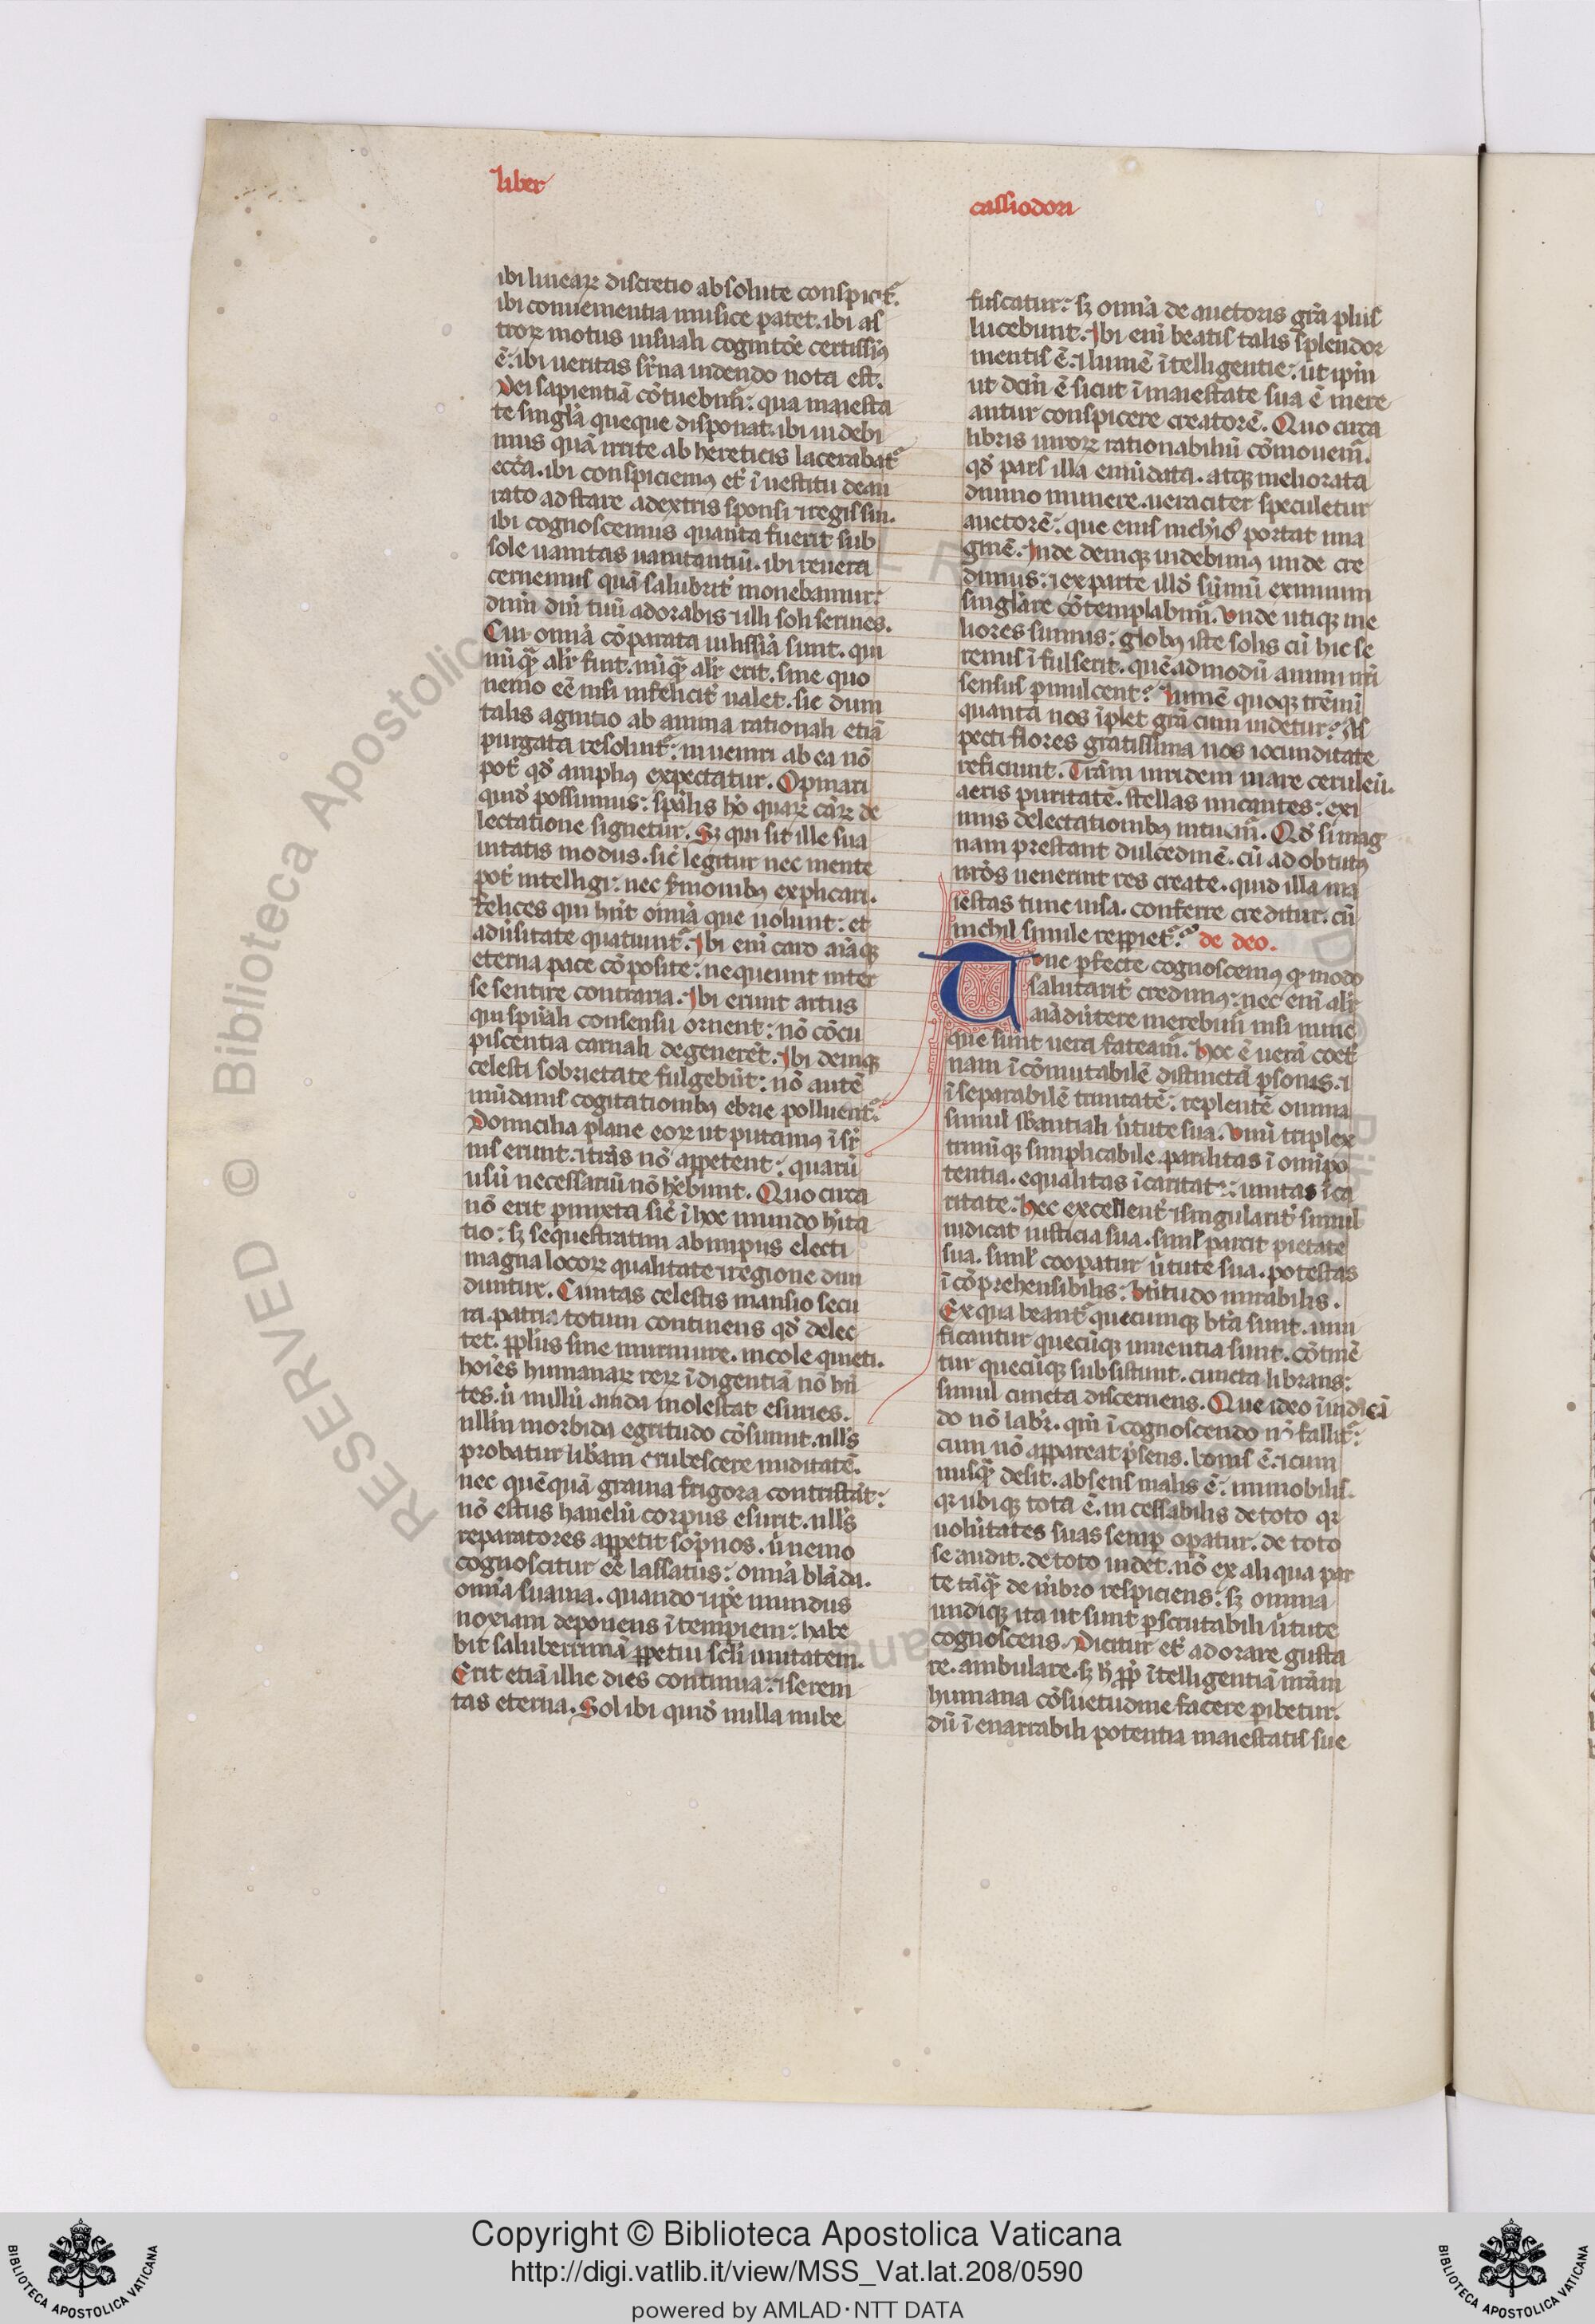 liber
cassiodori
ibi linearꝝ discretio absolute conspicit᷑.
ibi conuenientia musice patet. ibi as
trorꝝ motus uisuali cognitōe certissim᷒
ē: ibi ueritas sr̄na uidendo nota est.
Dei sapientiā cōtuebim᷑: qua maiesta
te singl̓a queque disponat. ibi uidebi
mus quā irrite ab hereticis lacerabat᷑
ecc̄a. ibi conspiciem᷒ et̄ ī uestitu deau
rato adstare adextris sponsi ⁊ regis sui.
ibi cognoscemus quanta fuerit sub
sole uanitas uanitantiū. ibi reuera
cernemus quā salubrit̓ monebamur:
dnm̄ dm̄ tuū adorabis ⁊ illi soli seruies.
Cui omīa cōparata uilissīa sunt. qui
nūqꝫ alr̓ fuit. nūqꝫ alr̓ erit. sine quo
nemo eē nisi infelicit̓ ualet. sic dum
talis agnitio ab anima rationali etiā
purgata resoluit᷑: inueniri ab ea nō
pot̄ qd̓ ampli᷒ expectatur. Opinari
quid̓ possumus: spālis hō quarꝝ cārꝝ de
lectatione signetur. Sꝫ qui sit ille sua
uitatis modus. sic̓ legitur nec mente
pot̄ intelligi: nec ſmonib᷒ explicari.
felices qui hn̄t omīa que uolunt: et
aduīsitate quatiunt᷑. Ibi eni caro aīaqꝫ
eterna pace cōposite: nequeunt inter
se sentire contraria. Ibi erunt artus
qui spūali consensu ornent: nō cōcu
piscentia carnali degenerēt. Ibi deniqꝫ
celesti sobrietate fulgebūt: nō autē
mūdanis cogitationib᷒ ebrie polluent᷑.
Domicilia plane eorꝝ ut putam᷒ ī sr̓
nis erunt. ⁊ trās nō appetent: quarū
usū necessariū nō hēbunt. Quo circa
nō erit pmixta sic̓ ī hoc mundo hīta
tio: sꝫ sequestratim ab impiis electi
magna locorꝝ qualitate ⁊ regione diui
duntur. Ciuitas celestis mansio secu
ra. patria totum continens qd̓ delec
tet. ppl̓us sine murmure. incole quieti.
hoīes humanarꝝ rerꝝ īdigentiā nō hn̄
tes. ū nullū auida molestat esuries.
nullū morbida egritudo cōsumit. null᷒
probatur libam erubescere nuditatē.
nec quēquā grauia frigora contristāt:
nō estus hanelū corpus esurit. null᷒
reparatores appetit sōpnos. ū nemo
cognoscitur eē lassatus: omīa blāda.
omīa suauia. quando ⁊ ipe mundus
noxiam deponens ītempiem: habe
bit saluberrimā ppetui scl̓i unitatem.
Erit etiā illic dies continua: ⁊ sereni
tas eterna. Sol ibi quid̓ nulla nube
fuscatur: sꝫ omīa de auctoris gr̄a plus
lucebunt. Ibi eni beatis talis splendor
mentis ē. ⁊ lumē ītelligentie: ut ipm̄
ut dem̄ ē sicut ī maiestate sua ē mere
antur conspicere creatorē. Quo circa
libris nrōrꝝ rationabiliū cōmouem᷑.
qd̓ pars illa emūdata. atqꝫ meliorata
diuino munere. ueraciter speculetur
auctorē: que eius meli᷒ portat ima
ginē. Inde deniqꝫ uidebim᷒ unde cre
dimus: ⁊ ex parte illd̓ sūmū eximium
singlāre cōtemplabim᷑. Vnde utiqꝫ me
liores sumus: glob᷒ iste solis cū hic se
renus ī fulserit. quēadmodū animi nrī
sensus pmulcent? Lumē quoqꝫ trēnū
quanta nos īplet gr̄a cum uidetur? As
pecti flores gratissima nos iocunditate
reficiunt. Trām uiridem mare ceruleū.
aeris puritatē. stellas micantes: exi
miis delectationib᷒ intuem᷑. Qd̓ si mag
nam prestant dulcedinē. cū ad obtut᷒
nrōs uenerint res create. quid illa ma
iestas tunc uisa. conferre creditur. cū
nichil simile reppiet᷑? de deo.
Tunc pfecte cognoscem᷒ qꝫ modo
salutarit̓ credim᷒: nec eni alr̓
aīaduertere merebim᷑ nisi nunc
que sunt uera fateam᷑. Hec ē uera coet̄
nam īcōmutabilē distinctā psonis. ⁊
īseparabilē trinitatē: replentē omnia
simul sb̄antiali ūtute sua. Vnū triplex
trinūqꝫ simplicabile. parilitas ī omīpo
tentia. equalitas ī caritate: unitas ī ca
ritate. Hec excellent̓ ⁊ singularit̓ simul
iudicat iusticia sua. simul parcit pietate
sua. simul coopatur ūtute sua. potestas
īcōprehensibilis: ūtitudo mirabilis.
Ex qua beant᷑ quecumqꝫ bt̄a sunt. uiui
ficantur quecūqꝫ uiuentia sunt. cōtinē
tur quecūqꝫ subsistunt. cuncta librans:
simul cuncta discernens. Que ideo ī iudicā
do nō labr̓. qm̄ ī cognoscendo nō fallit᷑:
cum nō appareat p̄sens. bonis ē. ⁊ cum
nusqꝫ desit. absens malis ē: immobilis.
qꝛ ubiqꝫ tota ē. incessabilis de toto qꝛ
uolūtates suas semp opatur. de toto
se audit. de toto uidet. nō ex aliqua par
te tāqꝫ de mēbro respiciens: sꝫ omnia
undiqꝫ ita ut sunt pscrutabili ūtute
cognoscens. Dicitur et̄ adorare gusta
re. ambulare. sꝫ h̓ ꝓpt̓ ītelligentiā nrām
humana cōsuetudine facere pibetur.
dū īenarrabili potentia maiestatis sue
RESERVED © Biblioteca Apostolica
Copyright © Biblioteca Apostolica Vaticana
http://digi.vatlib.it/view/MSS_Vat.lat.208/0590
powered by AMLAD·NTT DATA
BIBLIOTECA APOSTOLICA VATICANA
BIBLIOTECA APOSTOLICA VATICANA